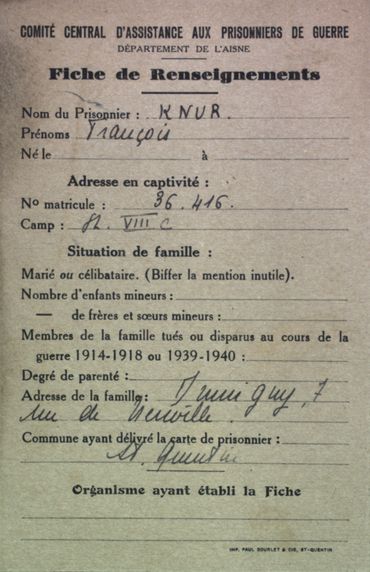 COMITÉ CENTRAL D'ASSISTANCE AUX PRISONNIERS DE GUERRE
DÉPARTEMENT DE L'AISNE
Fiche de Renseignements
Nom du Prisonnier : KNUR.
Prénoms François
Né le à
Adresse en captivité :
No matricule : 36.416.
Camp : St. VIII C
Situation de famille :
Marié ou célibataire. (Biffer la mention inutile).
Nombre d'enfants mineurs :
— de frères et sœurs mineurs :
Membres de la famille tués ou disparus au cours de la
guerre 1914-1918 ou 1939-1940 :
Degré de parenté :
Adresse de la famille : 7
rue de
Commune ayant délivré la carte de prisonnier :
St. Quentin
Organisme ayant établi la Fiche
IMP. PAUL DOURLET & CIE, ST-QUENTIN